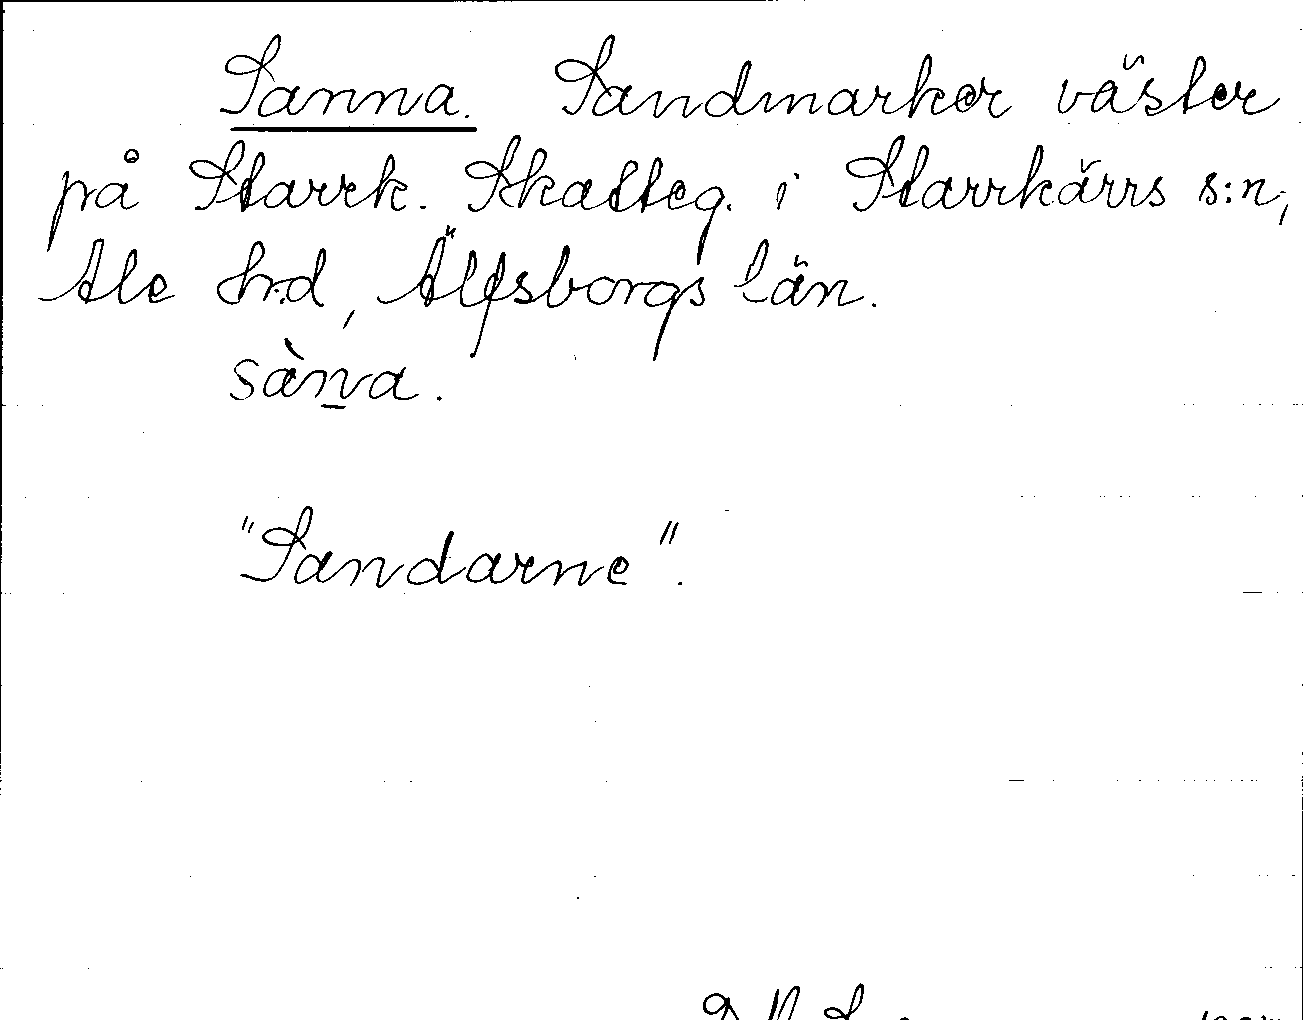 Sanna. Sandmarker väster
på Starrk. Skatteg. i Starrkärrs s:n,
Ale hrd, Älfsborgs län.
sàṉa.
"Sandarne".